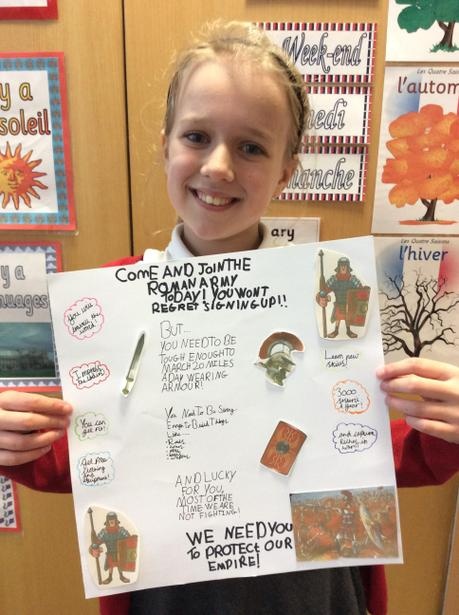 Week-end
Les Quatre Saisons
l'autom
y a
soleil
medi
manche
ary
Les Quatre Saisons
l'hiver
y a
nuages
COME AND JOIN THE
ROMAN ARMY
TODAY! YOU WONT
REGRET SIGNING UP!!
You will
travel the
world!
BUT...
YOU NEED TO BE
TOUGH ENOUGH TO
MARCH 20 MILES
A DAY WEARING
ARMOUR!
Learn new
skills!
You can
get
3000
a year!
You Need To Be Strong
Enough to Build Things
Like...
and explore
Get free
clothing
and
equipment!
AND LUCKY
FOR YOU,
MOST OF THE
TIME WE ARE
NOT FIGHTING!
WE NEED YOU
TO PROTECT OUR
EMPIRE!